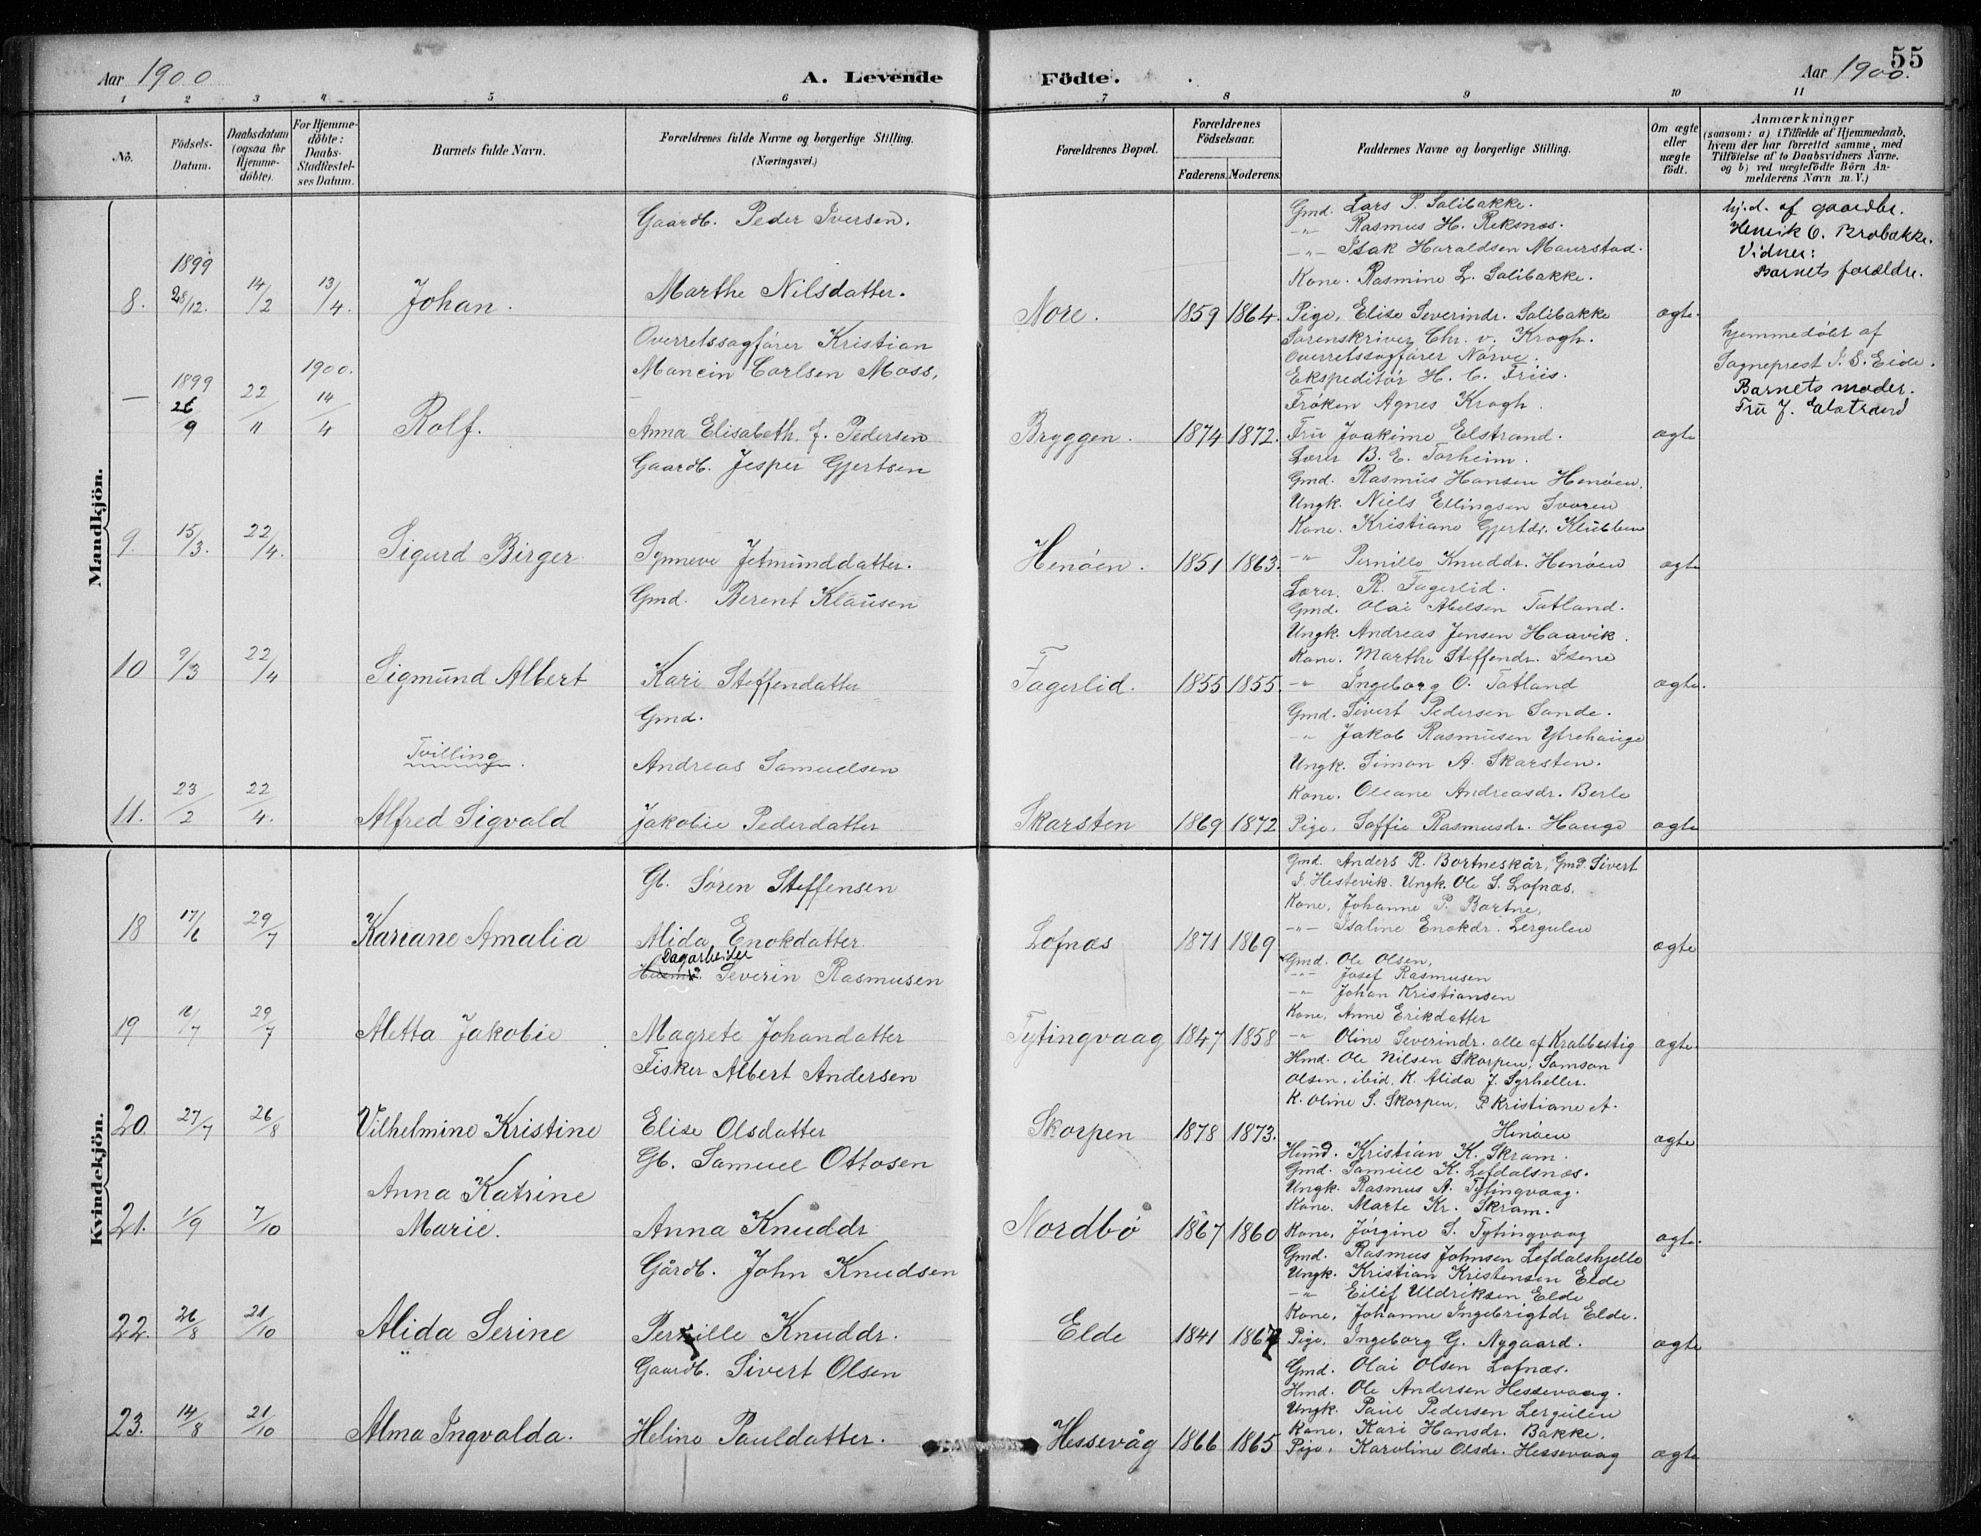 Aar 1900
A. Levende Födte.
Aar 1900.
55
1 2 3 4 5 6 7 8 9 10 11
No.
Födsels-
Datum.
Daabsdatum
(ogsaa for
Hjemme-
döbte).
For Hjemme-
döbte:
Daabs-
Stadfæstel-
ses Datum.
Barnets fulde Navn.
Forældrenes fulde Navne og borgerlige Stilling.
(Næringsvei.)
Forældrenes Bopæl.
Forældrenes
Födselsaar.
Faderens. Moderens.
Faddernes Navne og borgerlige Stilling.
Om ægte
eller
uægte
födt.
Anmærkninger
(saasom: a) i Tilfælde af Hjemmedaab,
hvem der har forrettet samme, med
Tilföielse af to Daabsvidners Navne.
og b) ved uægtefödte Börn An-
melderens Navn m. V.)
Mandkjön.
Gaardb. Peder Iversen.
1899
8. 28/12. 14/2 13/4. Johan. Marthe Nilsdatter. Nore. 1859 1864. ægte.
Gmd. Lars P. Solibakke.
-"- Rasmus H. Reksnæs.
-"- Isak Haraldsen Maurstad.
Kone. Rasmine L. Solibakke.
Pige, Elise Severindr. Solibakke
hj.d. af gaardbr.
Henrik O. Brobakke.
Vidner:
Barnets forældre.
Overretssagfører Kristian
Mancin Carlsen Moss,
1899 1900.
— 26/9 22/11 14/4 Rolf. Anna Elisabeth f. Pedersen Bryggen. 1874 1872. ægte
Sorenskriver Chr. v. Krogh.
Overretssagfører Nørve.
Ekspeditør H. C. Friis.
Frøken Agnes Krogh.
Fru Joakime Elstrand.
hjemmedøbt af
Sogneprest J. S. Eide.
Barnets moder.
Fru J. Elstrand
Gaardb. Jesper Gjertsen
9. 15/3. 22/4. Sigurd Birger Synneve Jetmunddatter. Henøen. 1851 1863. ægte
Lærer B. E. Torheim.
Gmd. Rasmus Hansen Henøen.
Ungk. Niels Ellingsen Svoren
Kone. Kristiane Gjertdr. Klubben
-"- Pernille Knuddr. Henøen
Gmd. Berent Klausen
10 9/3 22/4 Sigmund Albert Kari Steffendatter Fagerlid. 1855 1855. ægte.
Lærer. R. Fagerlid.
Gmd. Olai Abelsen Tatland.
Ungk. Andreas Jensen Haavik.
Kone. Marthe Steffendr. Isene
-"- Ingeborg O. Tatland
Gmd.
Tvilling. Andreas Samuelsen
11. 23/2 22/4. Alfred Sigvald Jakobie Pederdatter Skarsten 1869 1872 ægte
Gmd. Sivert Pedersen Sande.
-"- Jakob Rasmusen Ytrehauge
Ungk. Simon A. Skarsten.
Kone. Oleane Andreasdr. Berle
Pige, Soffie Rasmusdr. Hauge
Kvindekjön.
Gb. Søren Steffensen
18 17/6 29/7 Kariane Amalia Alida Enokdatter Lofnæs 1871 1869 ægte
Gmd. Anders R. Bortneskår, Gmd. Sivert
J. Hestevik. Ungk. Ole S. Lofnæs,
Kone, Johanne P. Bortne,
-"- Isaline Enokdr. Lergulen
Dagarbeider
Severin Rasmusen
19 16/7 29/7 Aletta Jakobie Magrete Johandatter Tytingvaag 1847 1858 ægte.
Gmd. Ole Olsen,
-"- Josef Rasmusen
-"- Johan Kristiansen
Kone, Anne Erikdatter
-"- Oline Severindr. alle af Krabbestig
Fisker Albert Andersen
20. 27/7 26/8 Vilhelmine Kristine Elise Olsdatter Skorpen 1878 1873. ægte
Hmd. Ole Nilsen Skorpen, Samson
Olsen, ibid, K. Alida J. Syrheller.
K. Oline S. Skorpen, P. Kristiane A.
Henøen
Gb. Samuel Ottosen
21. 1/9 7/10 Anna Katrine
Marie. Anna Knuddr Nordbø 1867 1860 ægte.
Husmd. Kristian K. Skram.
Gmd. Samuel K. Lefdalsnæs.
Ungk. Rasmus A. Tytingvaag.
Kone. Marte Kr. Skram.
Kone, Jørgine S. Tytingvaag
Gårdb. John Knudsen
22. 26/8 21/10 Alida Serine Pernille Knuddr. Elde 1841 1867 ægte
Gmd. Rasmus Johnsen Lefdalshjelle
Ungk. Kristian Kristensen Elde
-"- Eilef Uldriksen Elde
Kone, Johanne Ingebrigtdr Elde.
Pige, Ingeborg G. Nygaard.
Gaardb. Sivert Olsen
23. 14/8 21/10 Alma Ingvalda. Heline Pauldatter. Hessevåg 1866 1865 ægte
Gmd. Olai Olsen Lofnæs.
Hmd. Ole Andersen Hessevaag.
Ungk. Paul Pedersen Lergulen
Kone, Kari Hansdr. Bakke.
Pige, Karoline Olsdr. Hessevaag